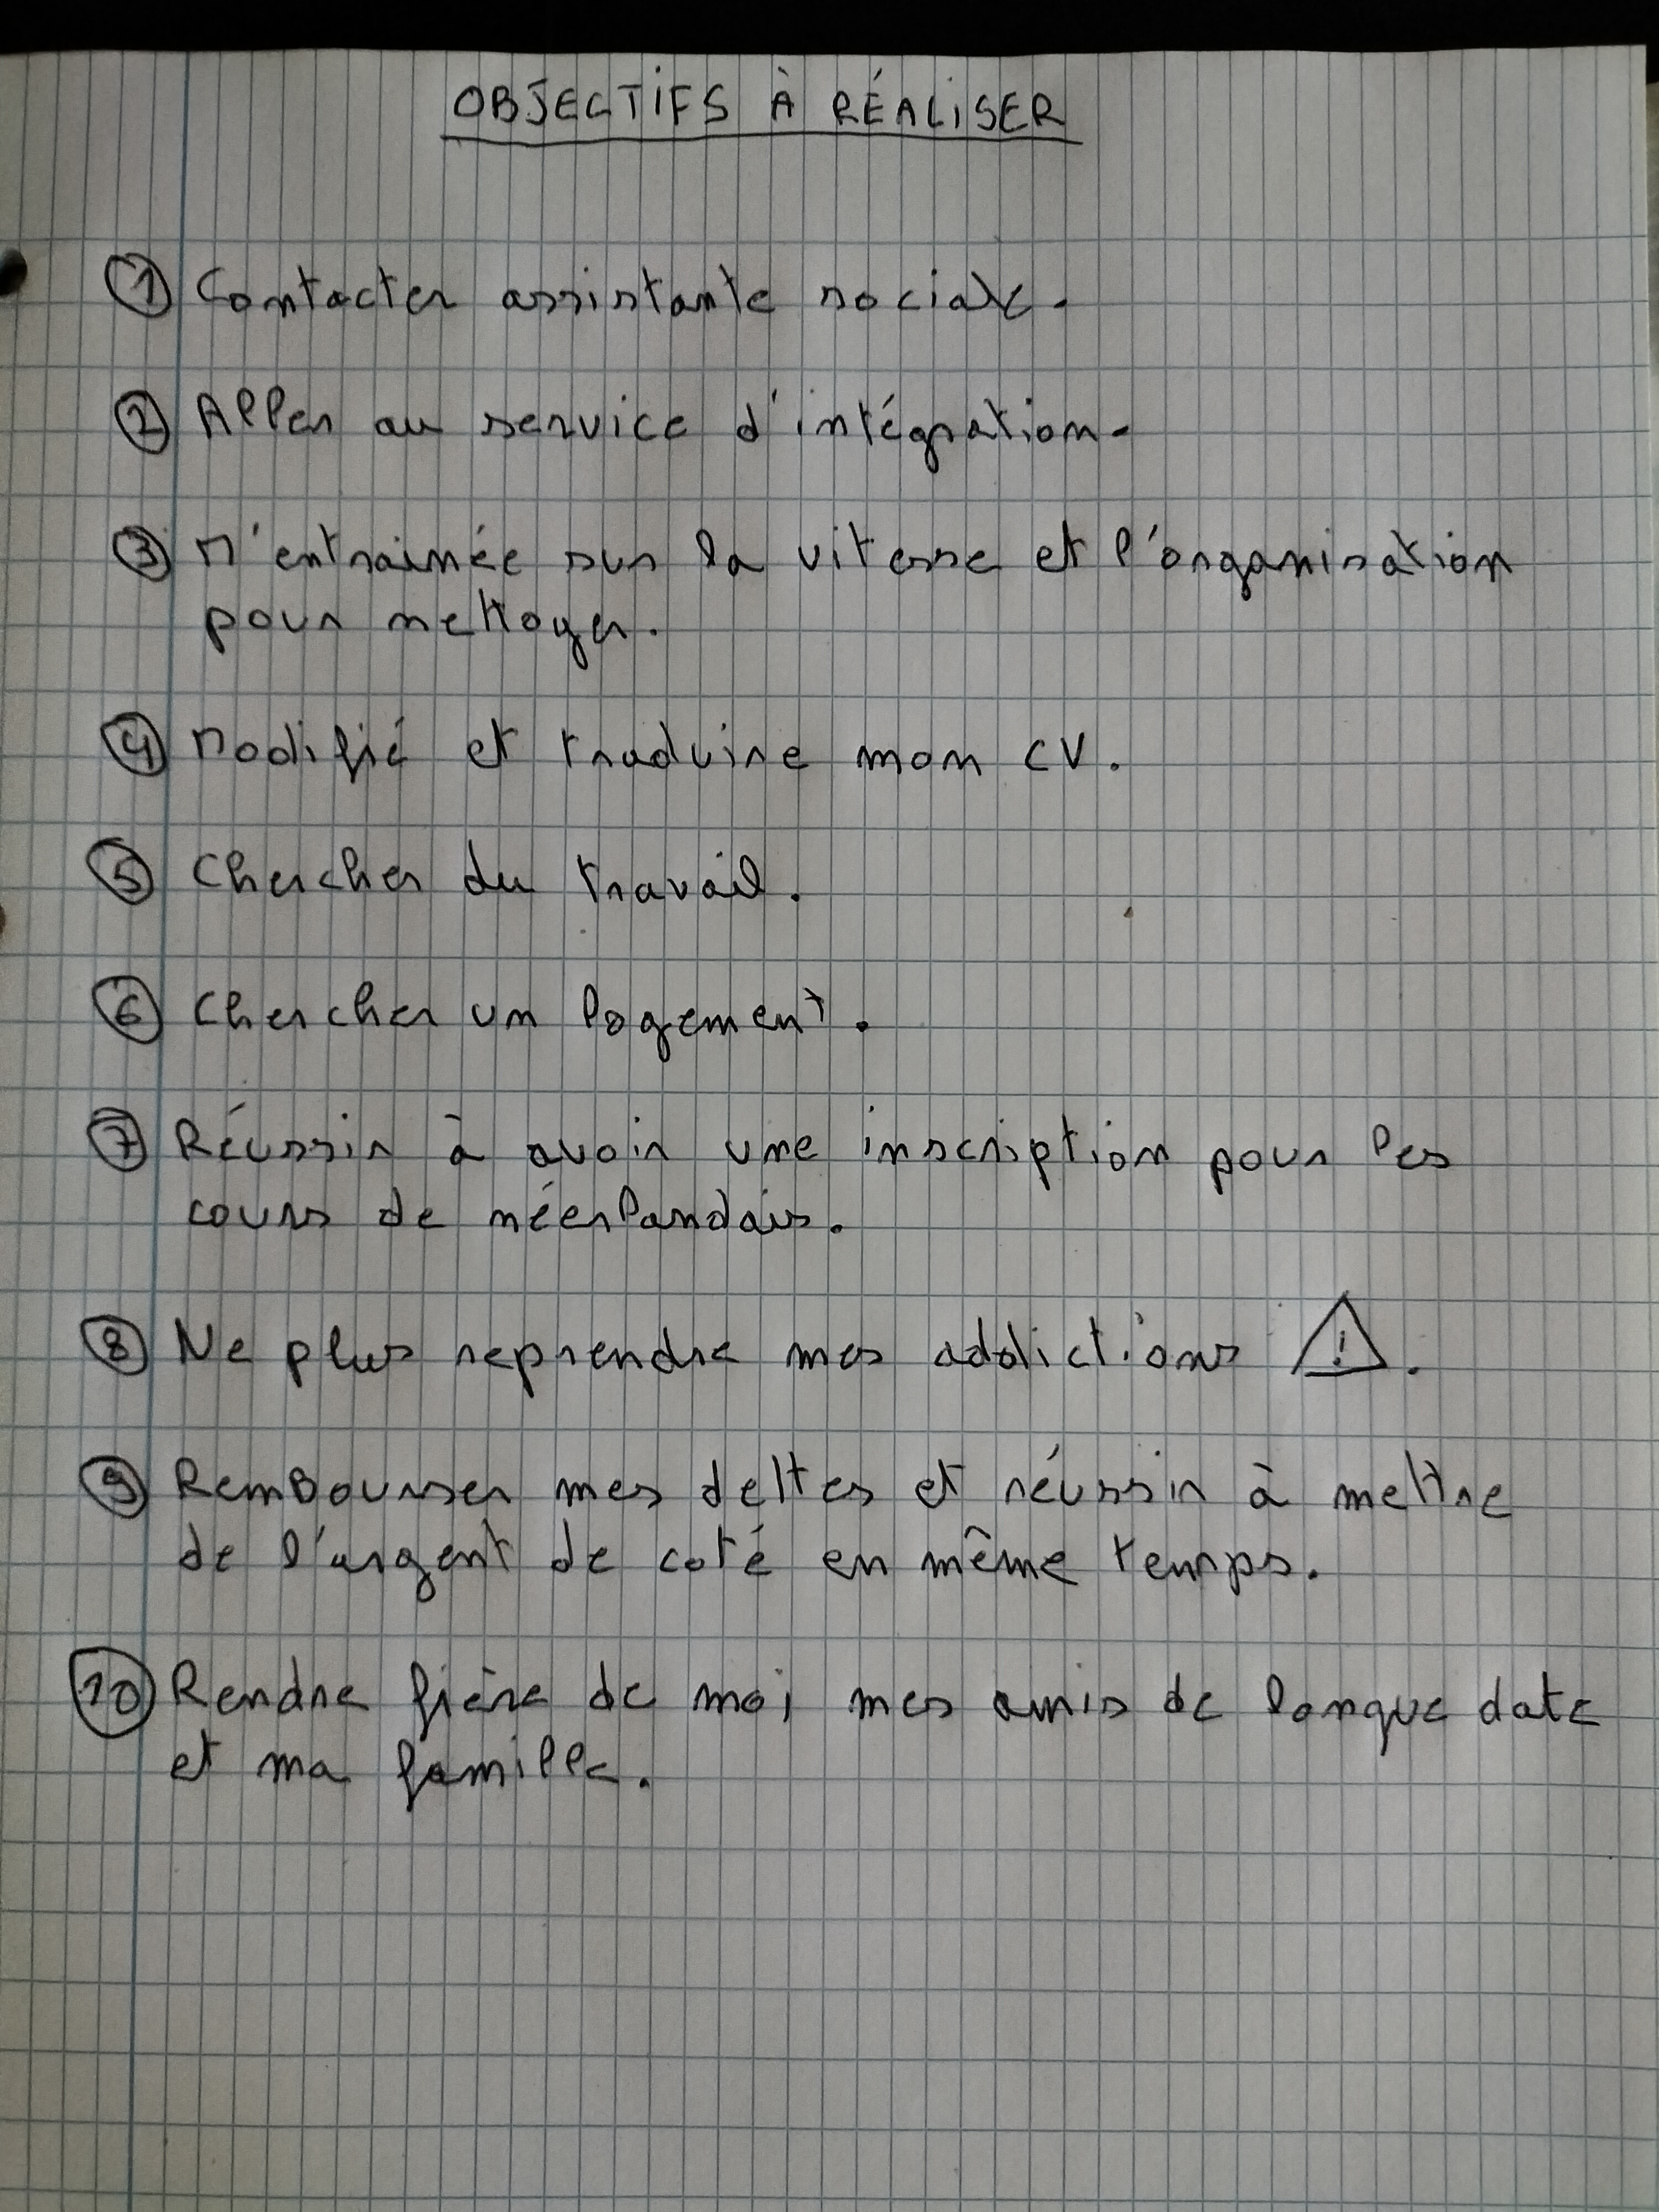 OBJECTIFS À RÉALISER
① Contacter assistante sociale.
② Aller au service d'intégration.
③ M'entrainée sur la vitesse et l'organisation
pour nettoyer.
④ Modifié et traduire mon CV.
⑤ Chercher du travail.
⑥ Chercher un logement.
⑦ Réussir à avoir une inscription pour les
cours de néerlandais.
⑧ Ne plus reprendre mes addictions ⚠.
⑨ Rembourser mes dettes et réussir à mettre
de l'argent de coté en même temps.
⑩ Rendre fière de moi mes amis de longue date
et ma famille.